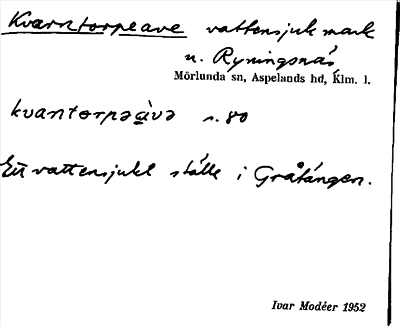 Kvarntorpeave vattensjuk mark
u. Ryningsnäs
Mörlunda sn, Aspelands hd, Klm. l.
kvantorpəàvə s. 80
Ett vattensjukt ställe i Gråtängen.
Ivar Modéer 1952